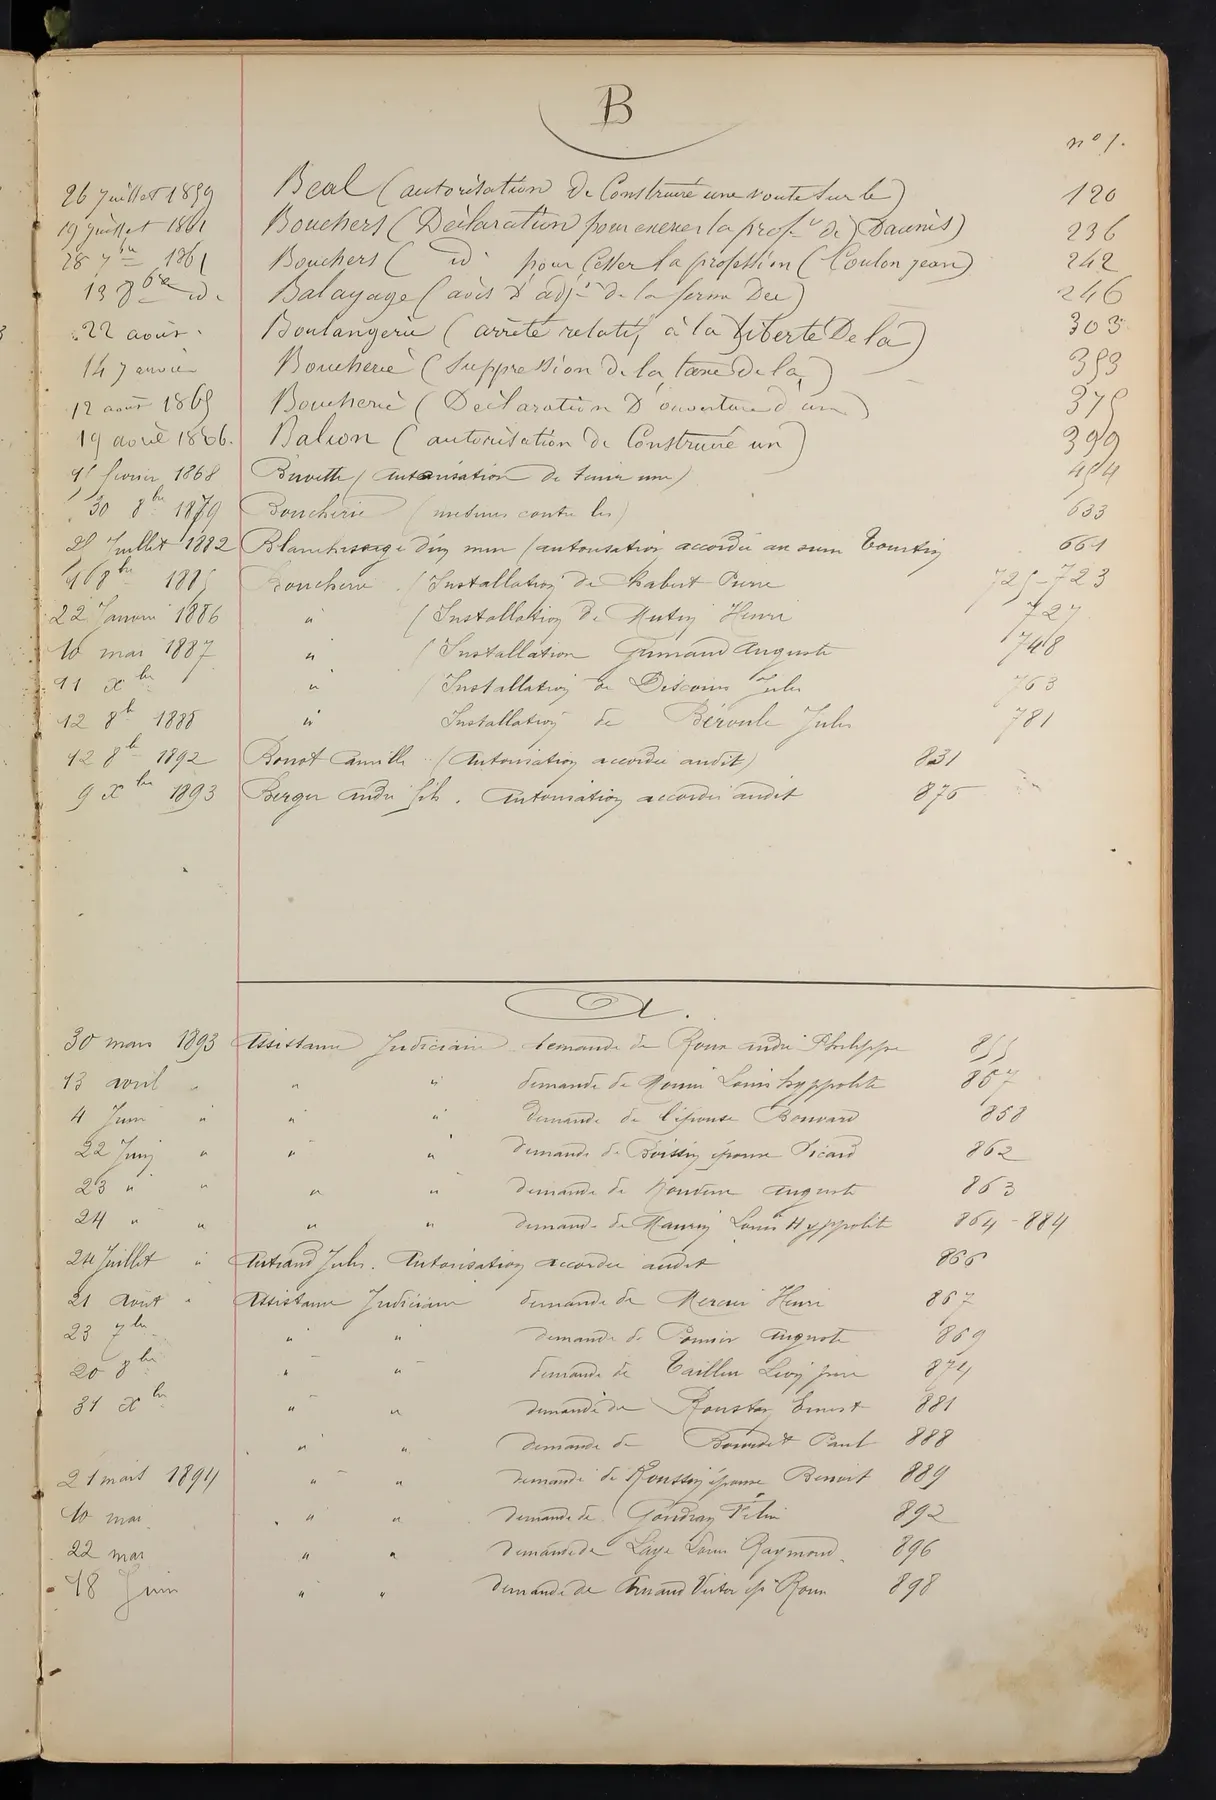 B
nos.
26 Juillet 1859 Béal (autorisation de Construire une voute sur le) 120
19 juillet 1861 Bouchers (Déclaration pour exercer la prof.on de) Daunis) 236
28 7bre 1861 Bouchers ( id. pour Cesser la profession (Coulon jean) 242
13 8bre id. Balayage (avis d'adj.on de la ferme De) 246
22 août. Boulangerie (arrêté relatif à la Liberté De la) 303
14 Janvier Boucherie (Suppression de la taxe de la) 353
12 août 1865 Boucherie (Déclaration D'ouverture d'une) 375
19 avril 1866. Balcon (autorisation de Construire un) 399
février 1868 Buvette (autorisation de tenir une) 454
30 8bre 1879 Boucherie (mesures contre les) 633
Juillet 1882 Blanchissage d'un mur (autorisation accordée au sieur Tourtin 661
16 8bre 1885 Boucherie (Installation de Chabert Pierre 725-723
22 Janvier 1886 " (Installation de Mutin Henri 727
10 mai 1887 " (Installation Grimaud Auguste 748
11 Xbre " (Installation de Jules 763
12 8bre 1888 " Installation de Béroule Jules 781
12 8bre 1892 Bonot Camille (Autorisation accordée audit) 831
9 Xbre 1893 Berger André fils. Autorisation accordée audit 876
A.
30 mars 1893 Assistance Judiciaire demande de Roux André Philippe 855
13 avril " " " demande de Louis hyppolite 857
4 Juin " " " demande de l'épouse Bouvard 858
22 Juin " " " demande de Boissin épouse Picard 862
23 " " " " demande de Auguste 863
24 " " " " demande de Maurin Louis Hyppolite 864-884
24 Juillet " Autrand Jules. Autorisation accordée audit 866
21 août " Assistance Judiciaire demande de Mercier Henri 867
23 7bre " " demande de Auguste 869
20 8bre " " demande de 874
31 Xbre " " demande de Roustan Ernest 881
" " demande de Paul 888
21 mars 1894 " " demande de Roussin épouse Benoit 889
10 mai " " demande de 892
22 mai " " demande de Laye Louis Raymond 896
18 Juin " " demande de Armand Victor ép. Roux 898